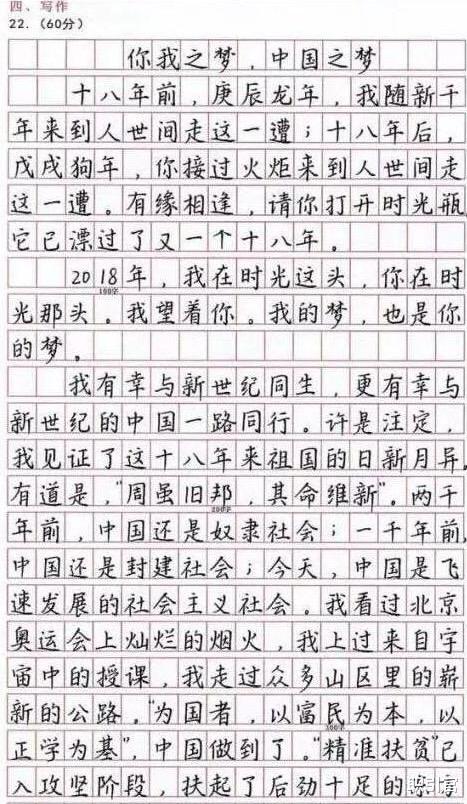 四、写作
22.（60分）
你我之梦，中国之梦
十八年前，庚辰龙年，我随新千
年来到人世间走这一遭；十八年后，
戊戌狗年，你接过火炬来到人世间走
这一遭。有缘相逢，请你打开时光瓶
它已漂过了又一个十八年。
2018年，我在时光这头，你在时
100字
光那头。我望着你。我的梦，也是你
的梦。
我有幸与新世纪同生，更有幸与
新世纪的中国一路同行。许是注定，
我见证了这十八年来祖国的日新月异，
有道是，“周虽旧邦，其命维新”。两千
200字
年前，中国还是奴隶社会；一千年前，
中国还是封建社会；今天，中国是飞
速发展的社会主义社会。我看过北京
奥运会上灿烂的烟火，我上过来自宇
宙中的授课，我走过众多山区里的崭
新的公路。“为国者，以富民为本，以
300字
正学为基”，中国做到了。“精准扶贫”已
入攻坚阶段，扶起了后劲十足的